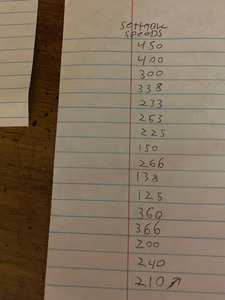 settable
speeds
450
400
300
338
233
263
225
150
266
138
125
360
366
200
240
210